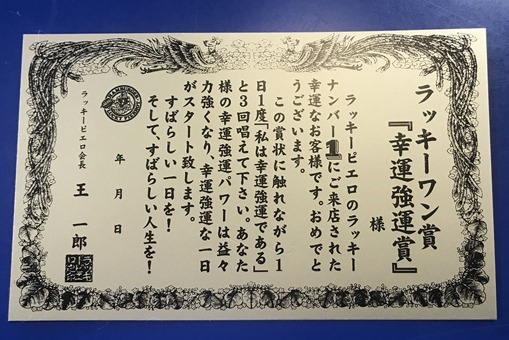 ラッキーワン賞
『幸運強運賞』
様
ラッキーピエロのラッキー
ナンバー1にご来店された
幸運なお客様です。おめでと
うございます。
この賞状に触れながら1
日1度「私は幸運強運である」
と3回唱えて下さい。あなた
様の幸運強運パワーは益々
力強くなり、幸運強運な一日
がスタート致します。
すばらしい一日を!
そして、すばらしい人生を!
年 月 日
ラッキーピエロ会長 王 一郎